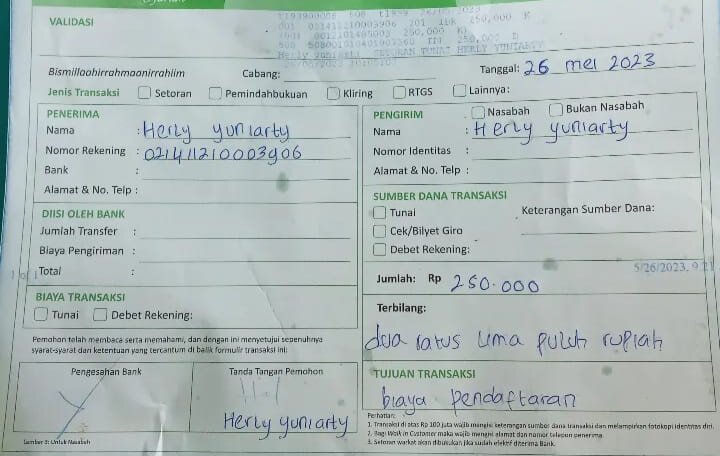 VALIDASI
250,000 K
SETORAN TUNAI HERLY YUNIARTY
Bismillaahirrahmaanirrahiim
Cabang:
Tanggal: 26 mei 2023
Jenis Transaksi Setoran Pemindahbukuan Kliring RTGS Lainnya:
PENERIMA
Nama : Herly yuniarty
Nomor Rekening : 021411210003906
Bank :
Alamat & No. Telp :
DIISI OLEH BANK
Jumlah Transfer :
Biaya Pengiriman :
Total :
1 of 1
BIAYA TRANSAKSI
Tunai Debet Rekening:
Pemohon telah membaca serta memahami, dan dengan ini menyetujui sepenuhnya
syarat-syarat dan ketentuan yang tercantum di balik formulir transaksi ini:
Pengesahan Bank
Tanda Tangan Pemohon
Herly yuniarty
Lembar 3: Untuk Nasabah
PENGIRIM Nasabah Bukan Nasabah
Nama : Herly yuniarty
Nomor Identitas :
Alamat & No. Telp :
SUMBER DANA TRANSAKSI
Tunai Keterangan Sumber Dana:
Cek/Bilyet Giro
Debet Rekening:
5/26/2023, 9:21
Jumlah: Rp 250.000
Terbilang:
dua ratus lima puluh rupiah
TUJUAN TRANSAKSI
biaya pendaftaran
Perhatian:
1. Transaksi di atas Rp 100 juta wajib mengisi keterangan sumber dana transaksi dan melampirkan fotokopi identitas diri.
2. Bagi Walk in Customer maka wajib mengisi alamat dan nomor telepon penerima.
3. Setoran warkat akan dibukukan jika sudah efektif diterima Bank.